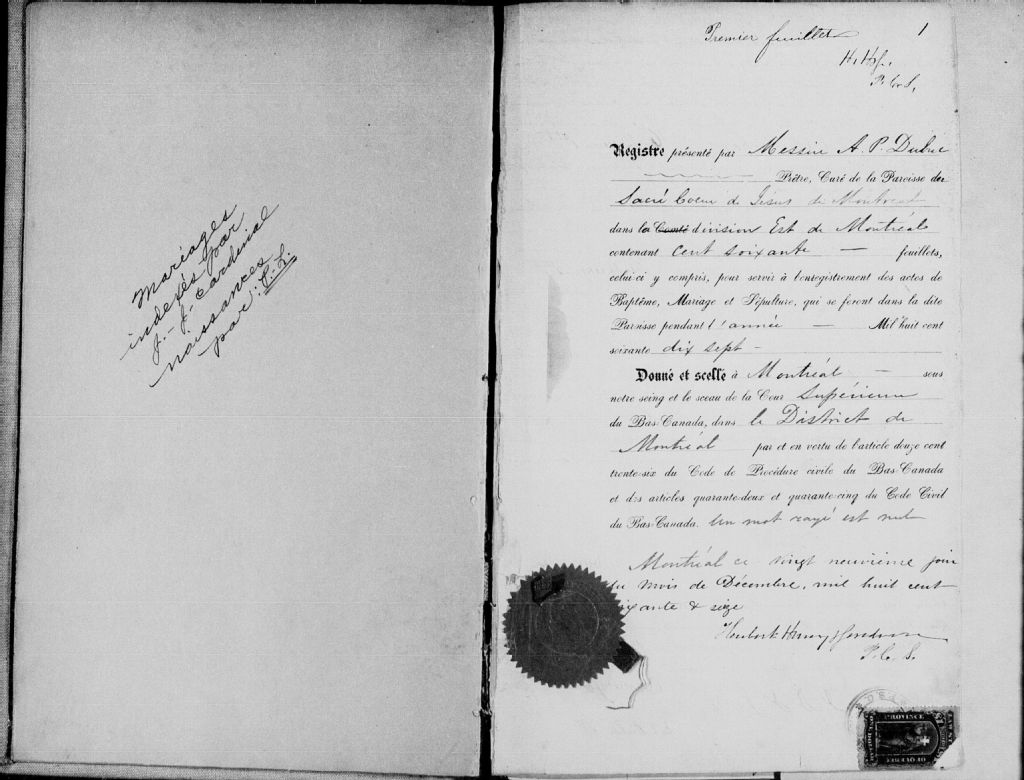 Mariages
indexés par
J.-J. Cardinal
naissances
par: P.-L.
Premier feuillet 1
P. C. S.
Registre présenté par Messire A. P. Dubuc
Prêtre, Curé de la Paroisse du
Sacré Coeur de Jésus de Montréal
dans la Comté division Est de Montréal
contenant Cent soixante — feuillets,
celui-ci y compris, pour servir à l'enregistrement des actes de
Baptême, Mariage et Sépulture, qui se feront dans la dite
Paroisse pendant l'année — Mil huit cent
soixante dix sept -
Donné et scellé à Montréal — sous
notre seing et le sceau de la Cour Supérieure
du Bas-Canada, dans le District de
Montréal par et en vertu de l'article douze cent
trente-six du Code de Procédure civile du Bas-Canada
et des articles quarante-deux et quarante-cinq du Code Civil
du Bas-Canada. Un mot rayé est nul
Montréal ce vingt neuvième jour
du mois de Décembre, mil huit cent
soixante & seize
P. C. S.
PROVINCE
OF QUEBEC
ONE DOLLAR
LAW STAMP
$1